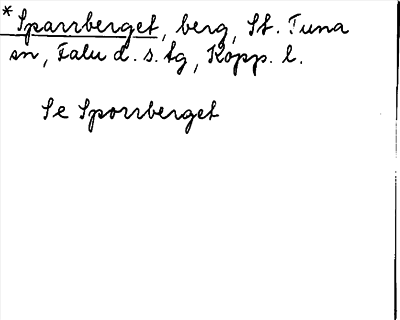 *Sparrberget, berg, St. Tuna
sn, Falu d. s. tg, Kopp. l.
Se Sporrberget